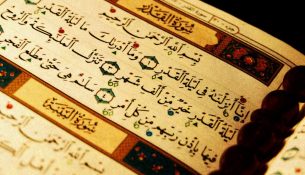 سُورَةُ الْقَدْرِ
بِسْمِ اللَّهِ الرَّحْمَٰنِ الرَّحِيمِ
إِنَّا أَنزَلْنَٰهُ فِي لَيْلَةِ الْقَدْرِ ١ وَمَا أَدْرَىٰكَ مَا لَيْلَةُ الْقَدْرِ ٢
لَيْلَةُ الْقَدْرِ خَيْرٌ مِّنْ أَلْفِ شَهْرٍ ٣ تَنَزَّلُ الْمَلَٰئِكَةُ وَالرُّوحُ
فِيهَا بِإِذْنِ رَبِّهِم مِّن كُلِّ أَمْرٍ ٤ سَلَٰمٌ هِيَ حَتَّىٰ مَطْلَعِ
سُورَةُ الْبَيِّنَةِ
بِسْمِ اللَّهِ الرَّحْمَٰنِ الرَّحِيمِ